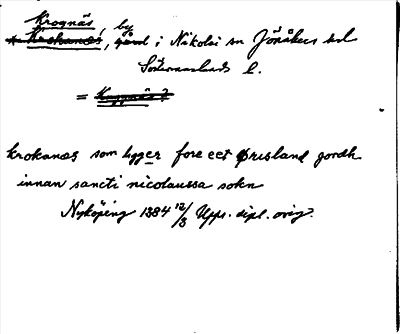 Krognäs, by
* Krokanes, gård i Nikolai sn Jönåkers hd
Södermanlands l.
= Kuggnäs?
krokanæs som ligger fore eet Ørisland gordh
innan sancti nicolaussa sokn
Nyköping 1384 12/3 Upps. dipl. orig.